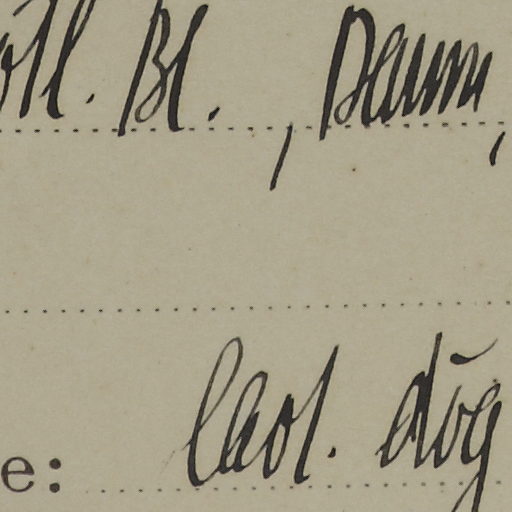 otl. Bl., Daum,
e: Caol. dōg